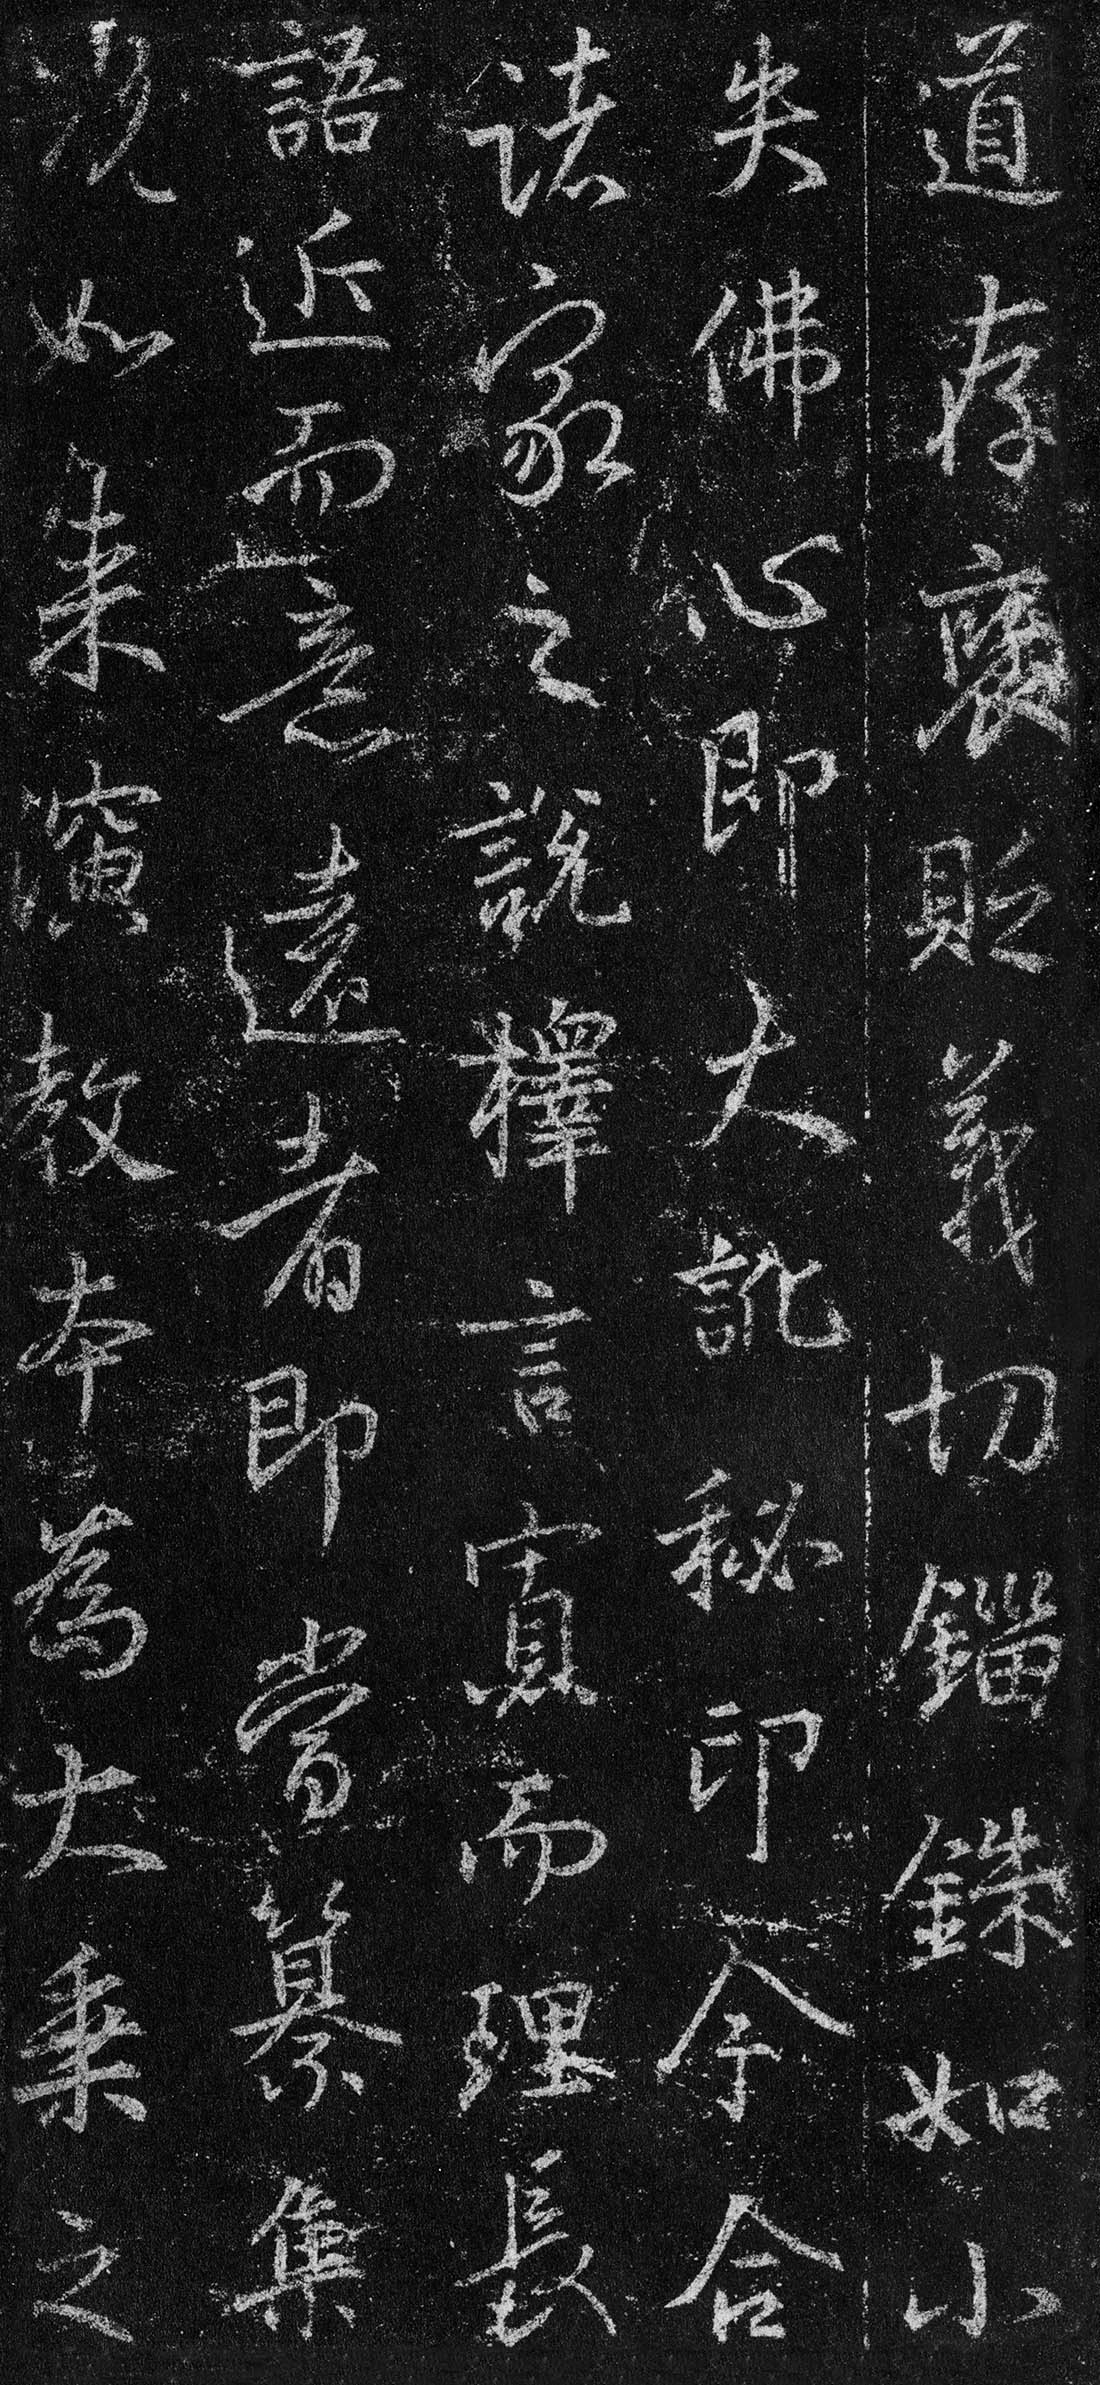 道存褒貶義切錙銖如小
失佛心即大訛秘印今合
諸家之說擇言寡而理長
語近而意遠者即當纂集
況如来演教本為大乘之